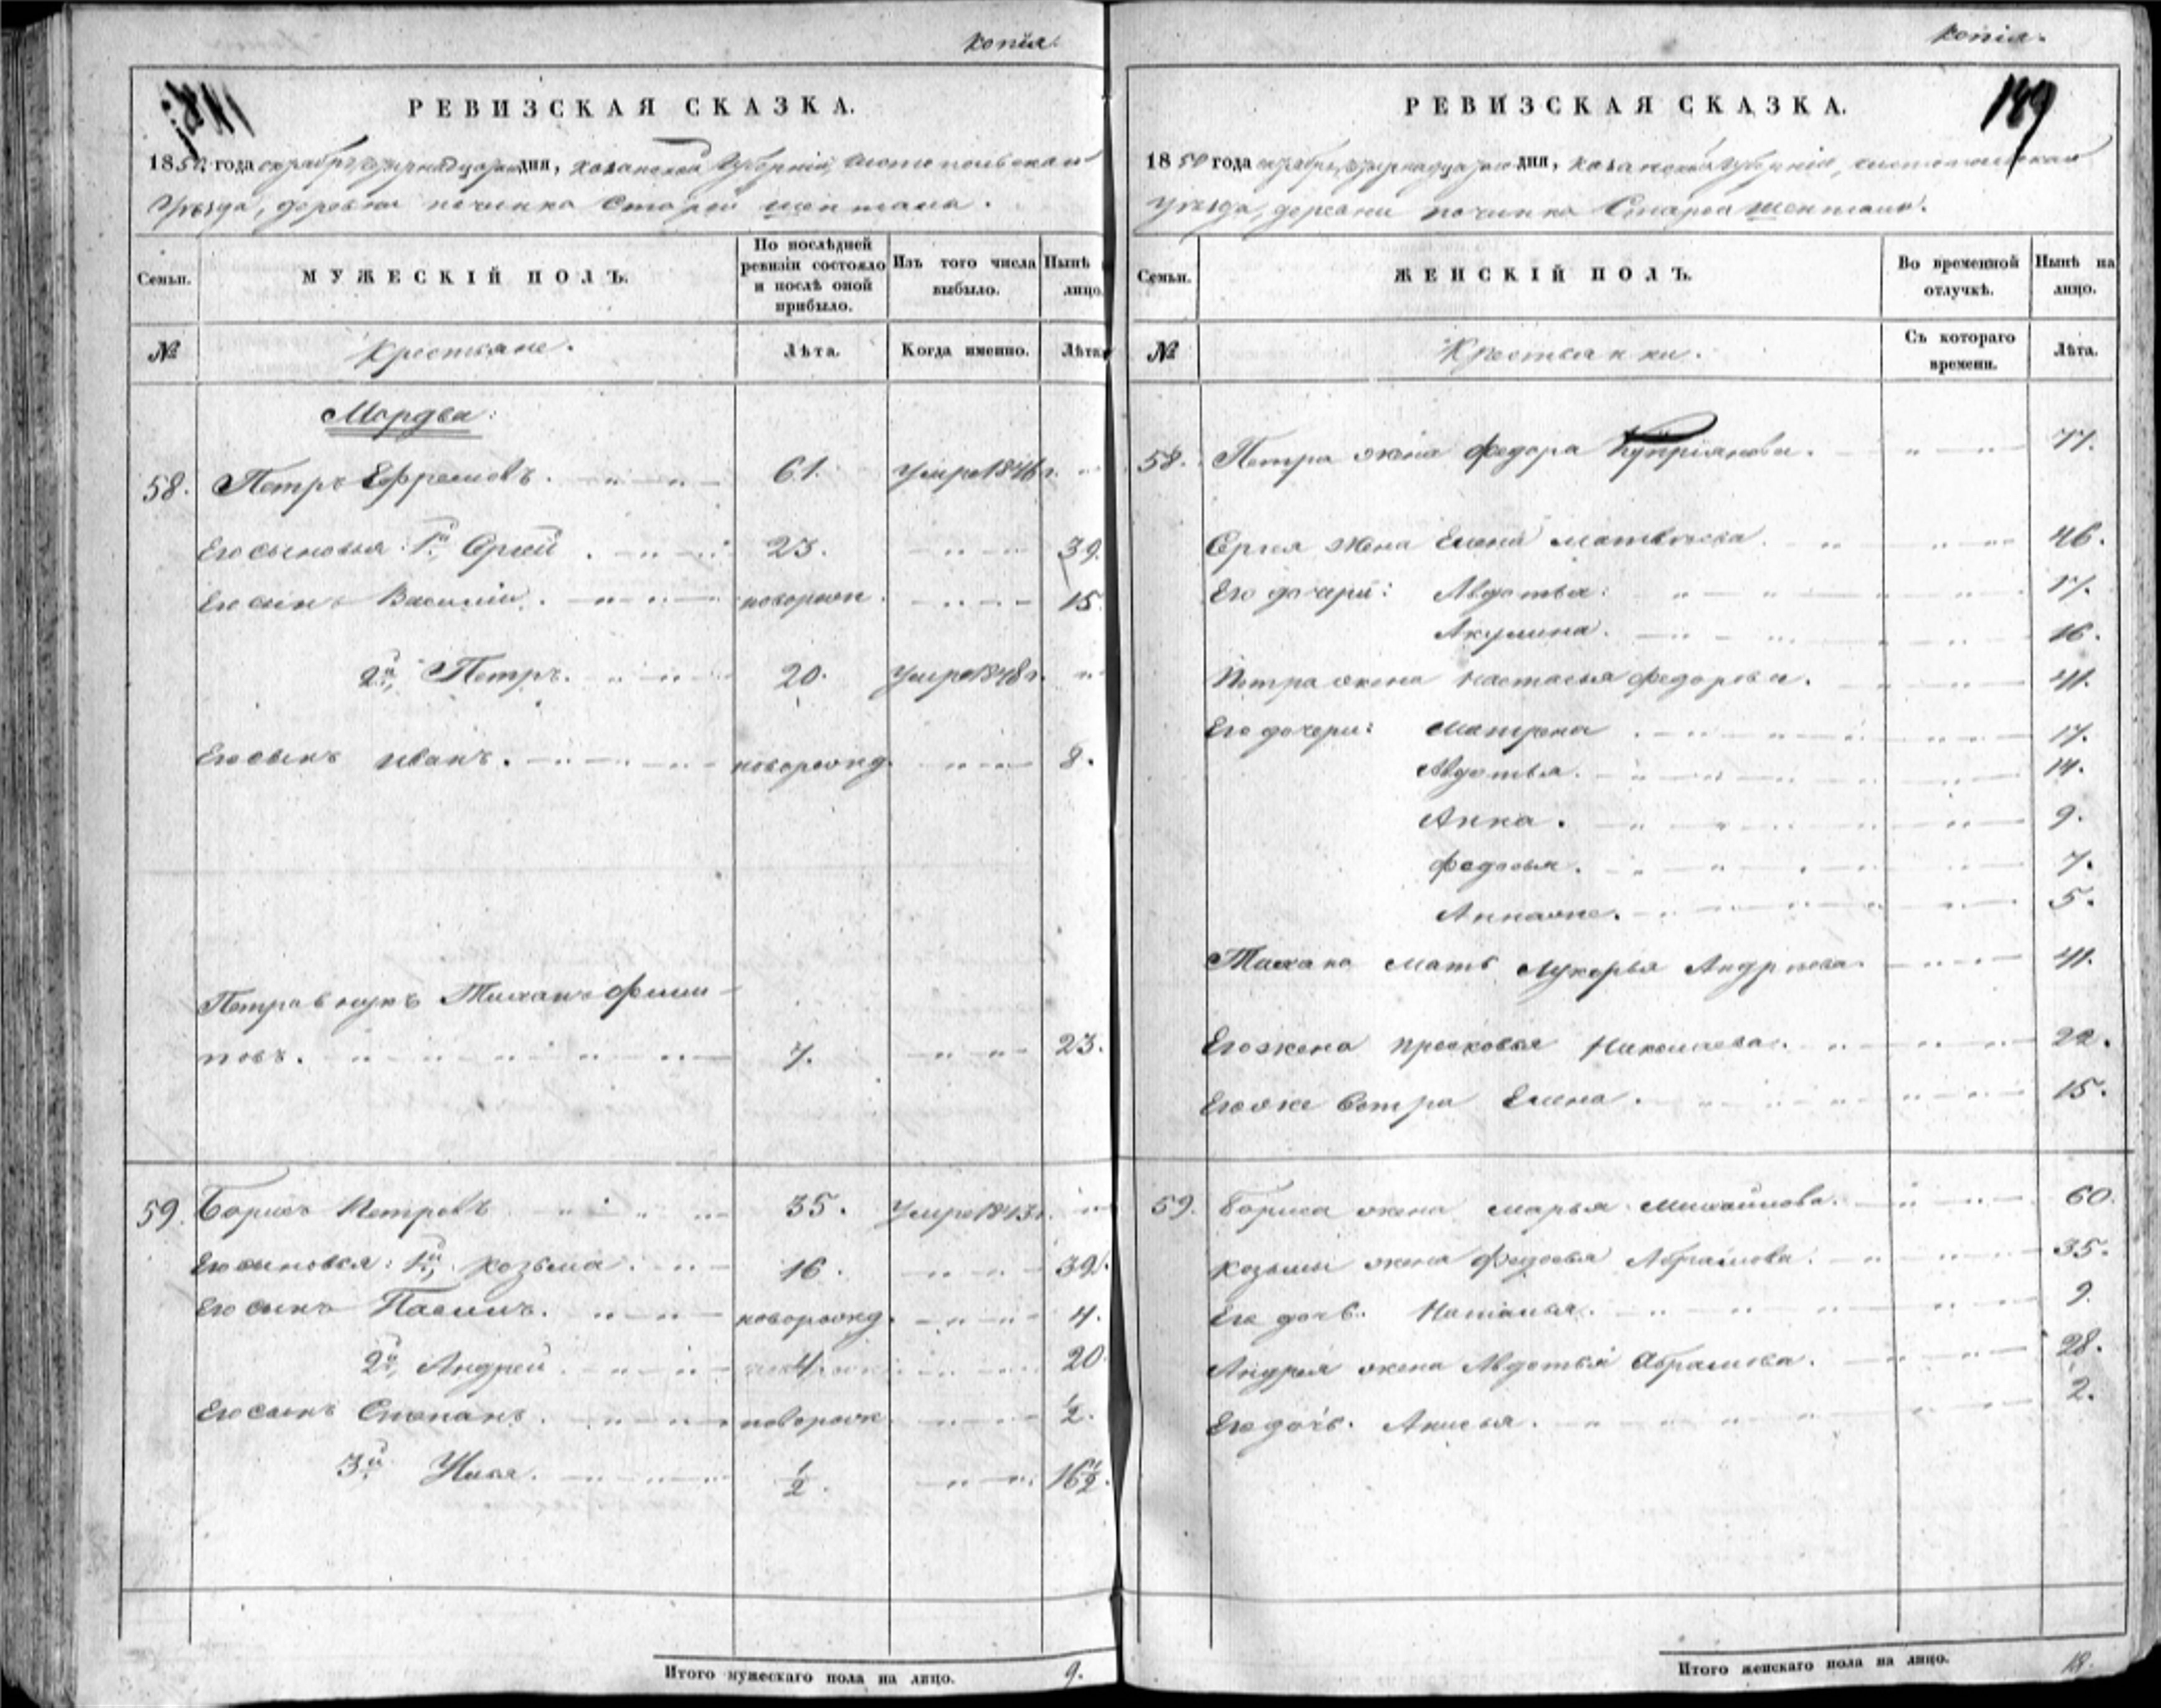 копія.
РЕВИЗСКАЯ СКАЗКА.
1850 года октября дня, Казанской Губерніи, Чистопольскаго
Уѣзда, деревни починка Старой Шентала.
Семьи. МУЖЕСКІЙ ПОЛЪ. По послѣдней ревизіи состояло и послѣ оной прибыло. Изъ того числа выбыло. Нынѣ лицо.
№ Крестьяне. Лѣта. Когда именно. Лѣта
Мордва:
58. Петръ Ефремовъ. 61. Умре 1846 г.
Его сыновья: 1й, Сргей 23. 39.
Его сынъ Василій. новорож. 15
2й, Петръ. 20. Умре 1848 г.
Его сынъ Иванъ. новорожд. 8.
Петра внукъ Тиханъ Фили-
повъ. 7. 23.
59. Борисъ Петровъ 35. Умре 1843 г.
Его сыновья: 1й, Козьма. 16. 32.
Его сынъ Павилъ. новорожд. 4.
2й, Андрей. 4 20
Его сынъ Степанъ. новорож. ½.
3й Илья. ½. 16½.
Итого мужескаго пола на лицо. 9.
копія.
189
РЕВИЗСКАЯ СКАЗКА.
1850 года октября дня, Казанской Губерніи, Чистопольскаго
Уѣзда, деревни починка Старой Шентала.
Семьи. ЖЕНСКІЙ ПОЛЪ. Во временной отлучкѣ. Нынѣ на лицо.
№ Крестьянки. Съ котораго времени. Лѣта.
58. Петра жена Федора Купріянова. 77.
Сргея жена Елена Матвѣева 46.
Его дочери: Авдотья: 17.
Акулина. 16.
Петра жена Настасья Федорова. 41.
Его дочери: Матрена 17.
Авдотья. 14.
Анна. 9.
Федосья. 7.
Анна же. 5.
Тихана мать Лукерья Андреева 41.
Его жена Прасковья Николаева. 22.
Его же Сетра Елена. 15.
59. Бориса жена Марья Михайлова. 60.
Козьмы жена Федосья Абрамова. 35.
Его дочь. Наталья. 9.
Андрея жена Авдотья Абрамова. 28.
Его дочь. Анисья. 2.
Итого женскаго пола на лицо. 18.